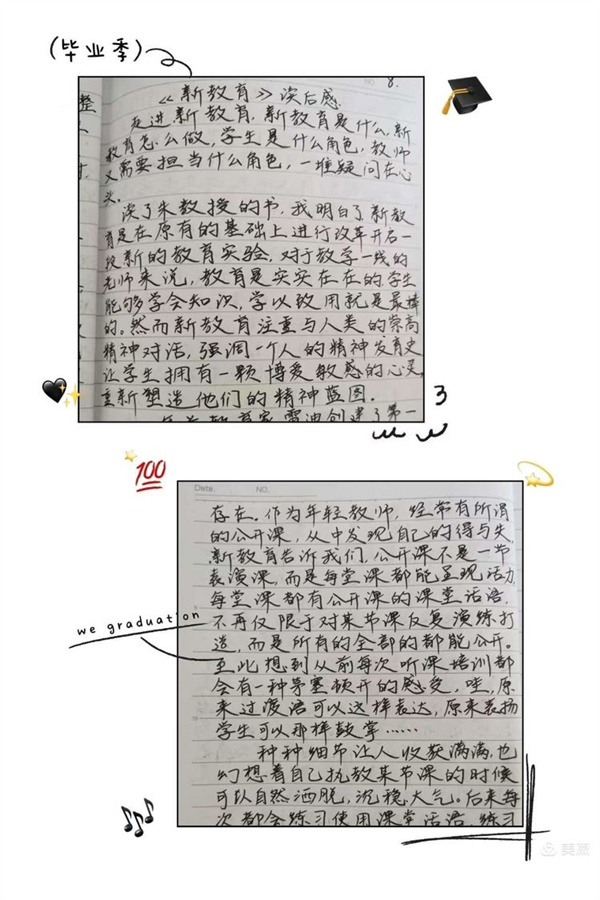 (毕业季)
8.
《新教育》读后感.
走进新教育,新教育是什么,新
教育怎么做,学生是什么角色,教师
又需要担当什么角色,一堆疑问在心
头.
读了朱教授的书,我明白了新教
育是在原有的基础上进行改革开启一
段新的教育实验.对于教学一线的
老师来说,教育是实实在在的学生
能够学会知识,学以致用就是最棒
的。然而新教育注重与人类的崇高
精神对话,强调一个人的精神发育史
让学生拥有一颗博爱敏感的心灵
重新塑造他们的精神蓝图.
雷迪创建了第一
100
Date. NO.
存在。作为年轻教师,经常有所谓
的公开课,从中发现自己的得与失.
新教育告诉我们,公开课不是一节
表演课,而是每堂课都能呈现活力,
每堂课都有公开课的课堂话语,
不再仅限于对某节课反复演练打
造,而是所有的全部的都能公开。
至此想到从前每次听课培训都
会有一种茅塞顿开的感受,哇,原
来过渡语可以这样表达,原来表扬
学生可以那样鼓掌……
种种细节让人收获满满,也
幻想着自己执教某节课的时候
可以自然洒脱,沉稳大气。后来每
次都会练习使用课堂话语,练习
we graduation
美篇